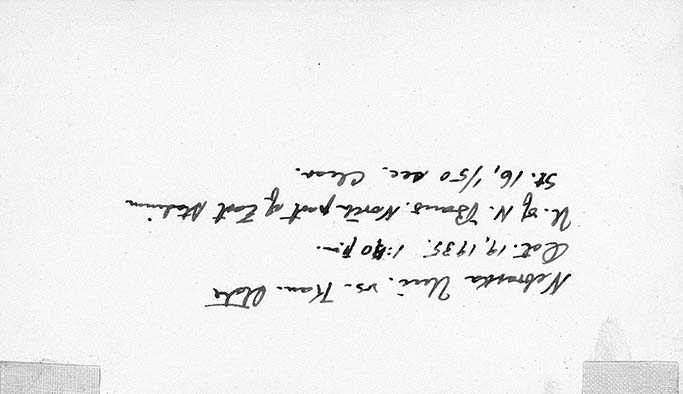 Nebraska Uni. vs. Kan. State
Oct. 19, 1935. 1:40 p.m.
U. of N. Band. North part of East Stadium
St. 16, 1/50 sec. Clear.